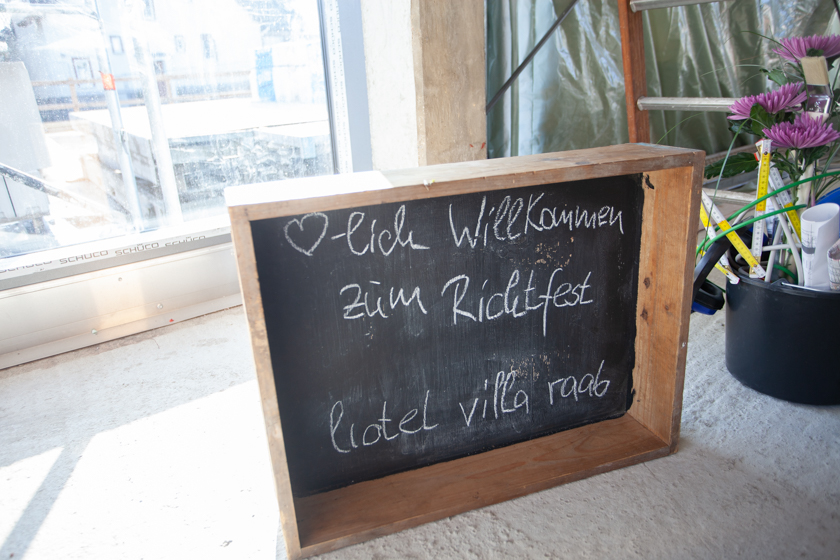 ♡-lich Willkommen
zum Richtfest
hotel villa raab
SCHÜCO SCHÜCO SCHÜCO